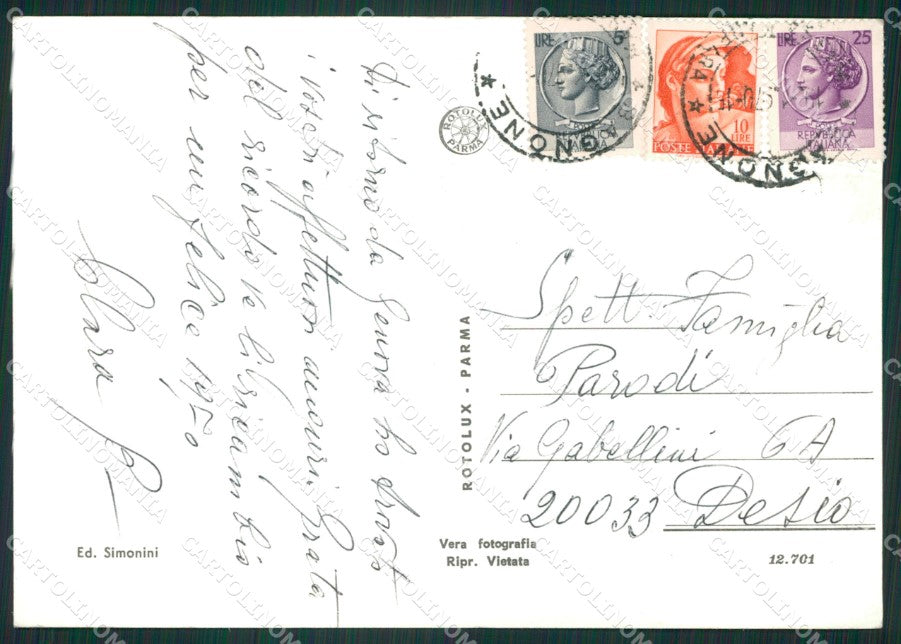 Di ritorno da Genova ho trovato
i vostri affettuosi auguri. Grata
del ricordo ve li ricambio
per un felice 1970
Clara
LIRE 5
REPVBBLICA
ITALIANA
10
LIRE
POSTE ITALIANE
LIRE 25
REPVBBLICA
ITALIANA
GNONE
ROTOLUX
PARMA
Spett Famiglia
Parodi
Via Gabellini 6A
20033 Desio
ROTOLUX - PARMA
Ed. Simonini
Vera fotografia
Ripr. Vietata
12.701
CARTOLINOMANIA